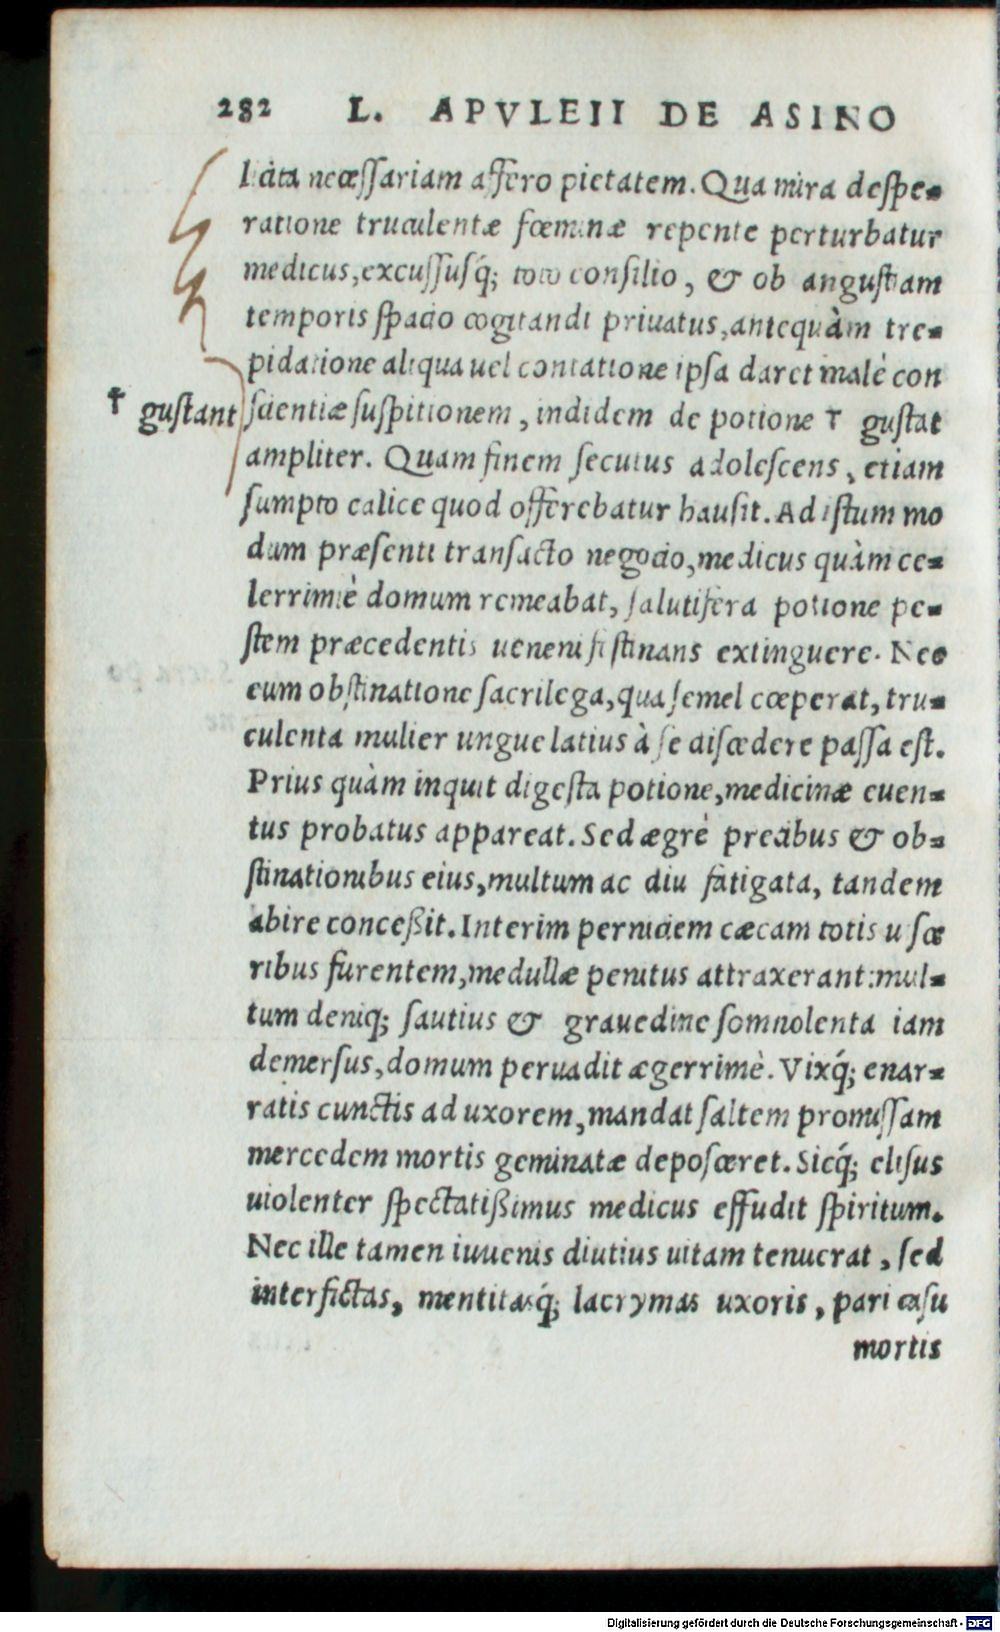 282 L. APVLEII DE ASINO
licita necessariam affero pietatem. Qua mira despe-
ratione truculentæ fœminæ repente perturbatur
medicus, excussusq́; toto consilio, & ob angustiam
temporis spacio cogitandi priuatus, antequàm tre-
pidatione aliqua uel contatione ipsa daret malè con
† gustant
scientiæ suspitionem, indidem de potione † gustat
ampliter. Quam finem secutus adolescens, etiam
sumpto calice quod offerebatur hausit. Ad istum mo
dum præsenti transacto negocio, medicus quàm ce-
lerrimè domum remeabat, salutifera potione pe-
stem præcedentis ueneni festinans extinguere. Nec
eum obstinatione sacrilega, qua semel cœperat, tru-
culenta mulier ungue latius à se discedere passa est.
Prius quàm inquit digesta potione, medicinæ euen-
tus probatus appareat. Sed ægrè precibus & ob-
stinationibus eius, multum ac diu fatigata, tandem
abire conceßit. Interim perniciem cæcam totis uisce
ribus furentem, medullæ penitus attraxerant: mul-
tum deniq; sautius & grauedine somnolenta iam
demersus, domum peruadit ægerrimè. Vixq́; enar-
ratis cunctis ad uxorem, mandat saltem promissam
mercedem mortis geminatæ deposceret. Sicq́; elisus
uiolenter spectatißimus medicus effudit spiritum.
Nec ille tamen iuuenis diutius uitam tenuerat, sed
inter fictas, mentitasq́; lacrymas uxoris, pari casu
mortis
Digitalisierung gefördert durch die Deutsche Forschungsgemeinschaft - DFG